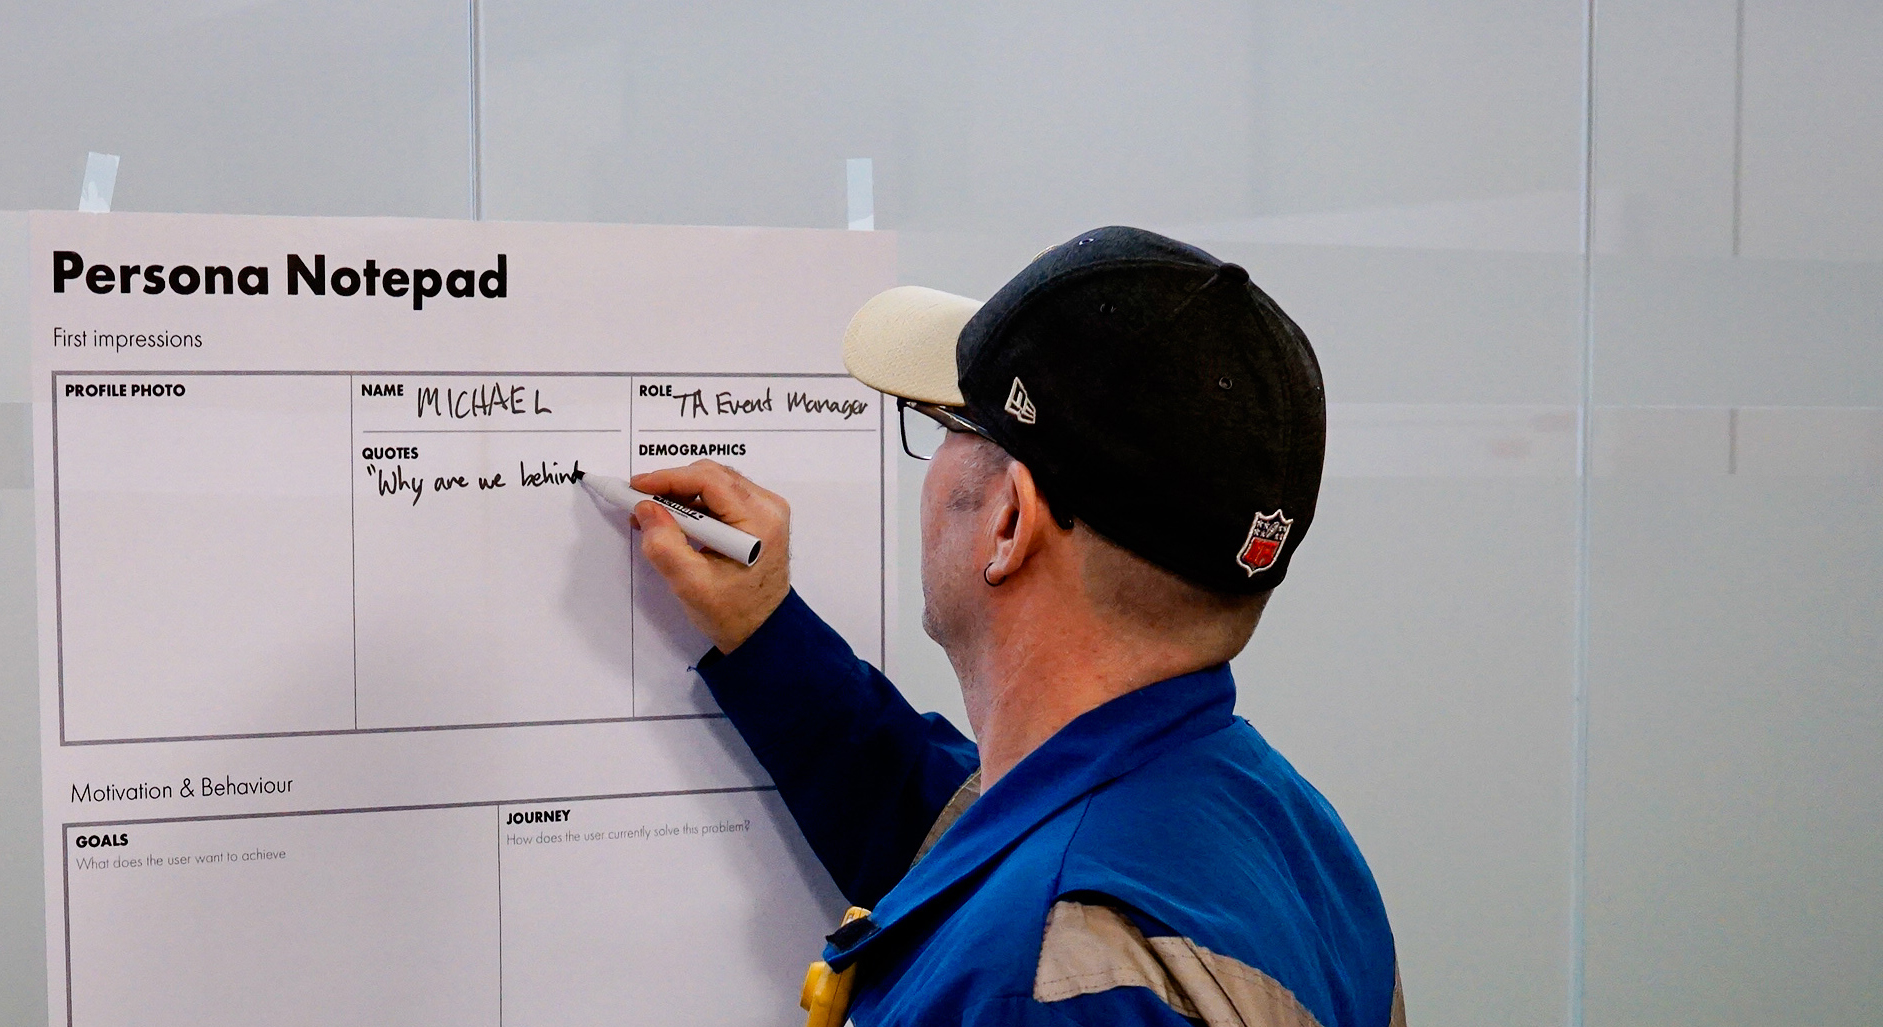 Persona Notepad
First impressions
PROFILE PHOTO
NAME MICHAEL
ROLE TA Event Manager
QUOTES
"Why are we behind
DEMOGRAPHICS
Motivation & Behaviour
GOALS
What does the user want to achieve
JOURNEY
How does the user currently solve this problem?